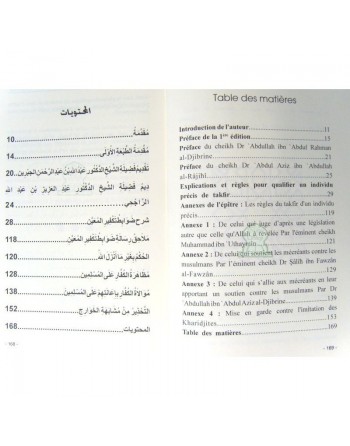 المحتويات
مقدمة 10
مقدمة الطبعة الأولى 14
تقديم فضيلة الشيخ الدكتور عبد الله بن عبد الرحمن الجبرين 20
ديم فضيلة الشيخ الدكتور عبد العزيز بن عبد الله
الراجحي 24
شرح ضوابط تكفير المعين 28
ملاحق رسالة ضوابط تكفير المعين 118
الحكم بغير ما أنزل الله 120
مظاهرة الكفار على المسلمين 128
موالاة الكفار بإعانتهم على المسلمين 138
التحذير من مشابهة الخوارج 152
المحتويات 168
- 168 -
Table des matières
Introduction de l'auteur 11
Préface de la 1ère édition 15
Préface du cheikh Dr ʿAbdullah ibn ʿAbdal Rahman
al-Djibrine 21
Préface du cheikh Dr ʿAbdul Aziz ibn ʿAbdallah
al-Râjihî 25
Explications et règles pour qualifier un individu
précis de takfir 29
Annexes de l'épître : Les règles du takfir d'un individu
précis 119
Annexe 1 : De celui qui juge d'après une législation
autre que celle qu'Allah a révélée Par l'éminent cheikh
Muhammad ibn ʿUthaymîn 121
Annexe 2 : De celui qui soutient les mécréants contre les
musulmans Par l'éminent cheikh Dr Sâlih ibn Fawzân
al-Fawzân 129
Annexe 3 : De celui qui s'allie aux mécréants en leur
apportant un soutien contre les musulmans Par Dr
ʿAbdullah ibn ʿAbdul Aziz al-Djibrine 139
Annexe 4 : Mise en garde contre l'imitation des
Kharidjites 153
Table des matières 169
- 169 -